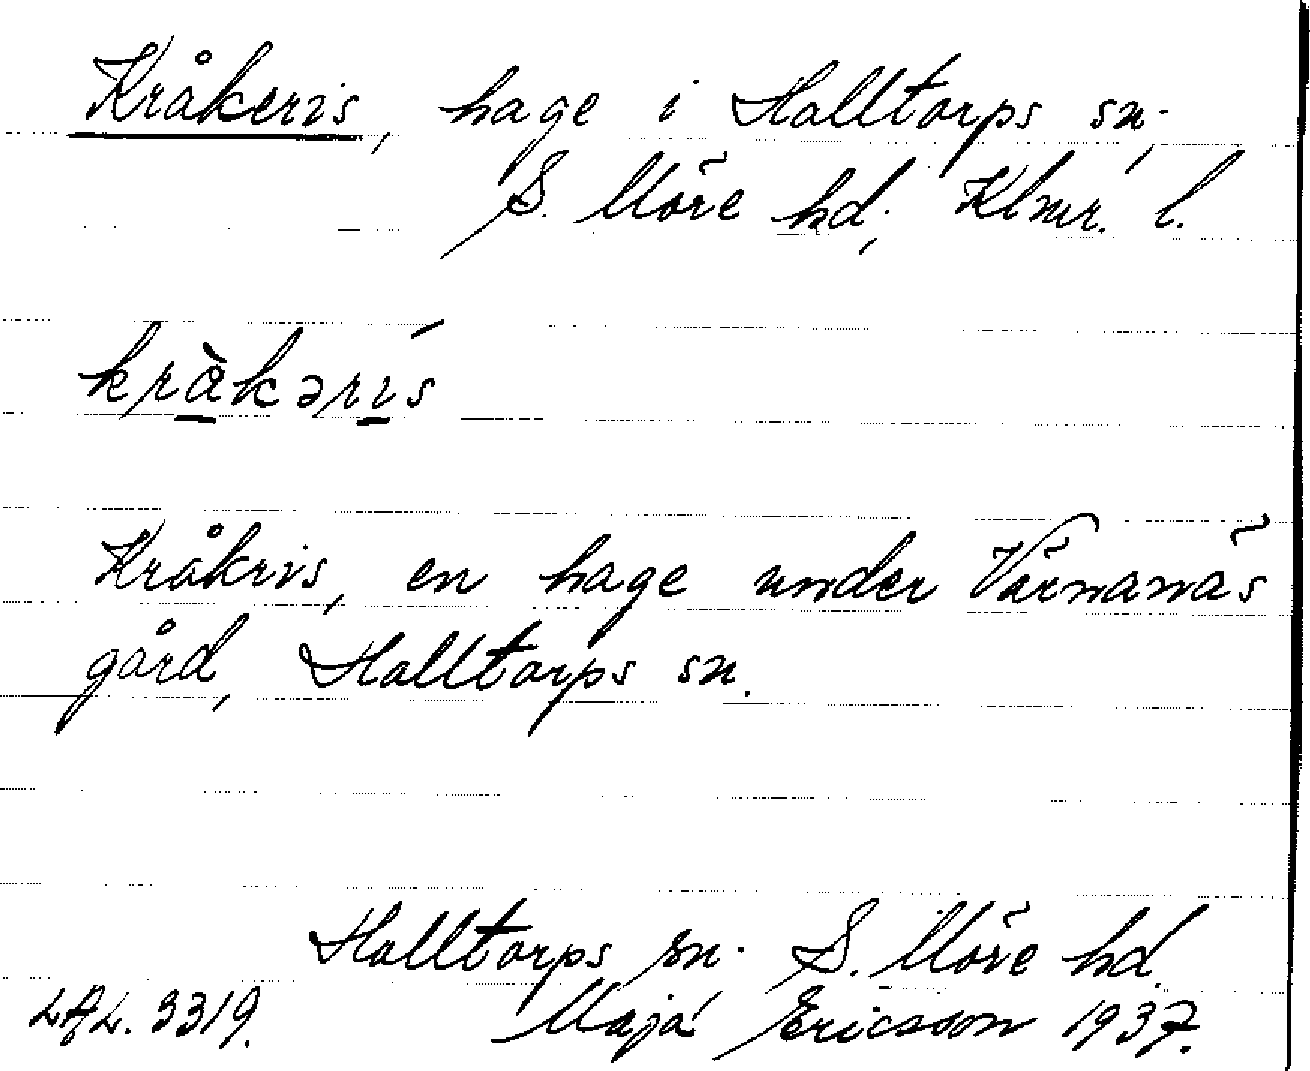 Kråkeris, hage i Halltorps sn,
S. Möre hd, Klmr. l.
kràkərís
Kråkris, en hage under Värnanäs
gård, Halltorps sn.
Halltorps sn. S. Möre hd.
LAL. 3319. Maja Ericsson 1937.